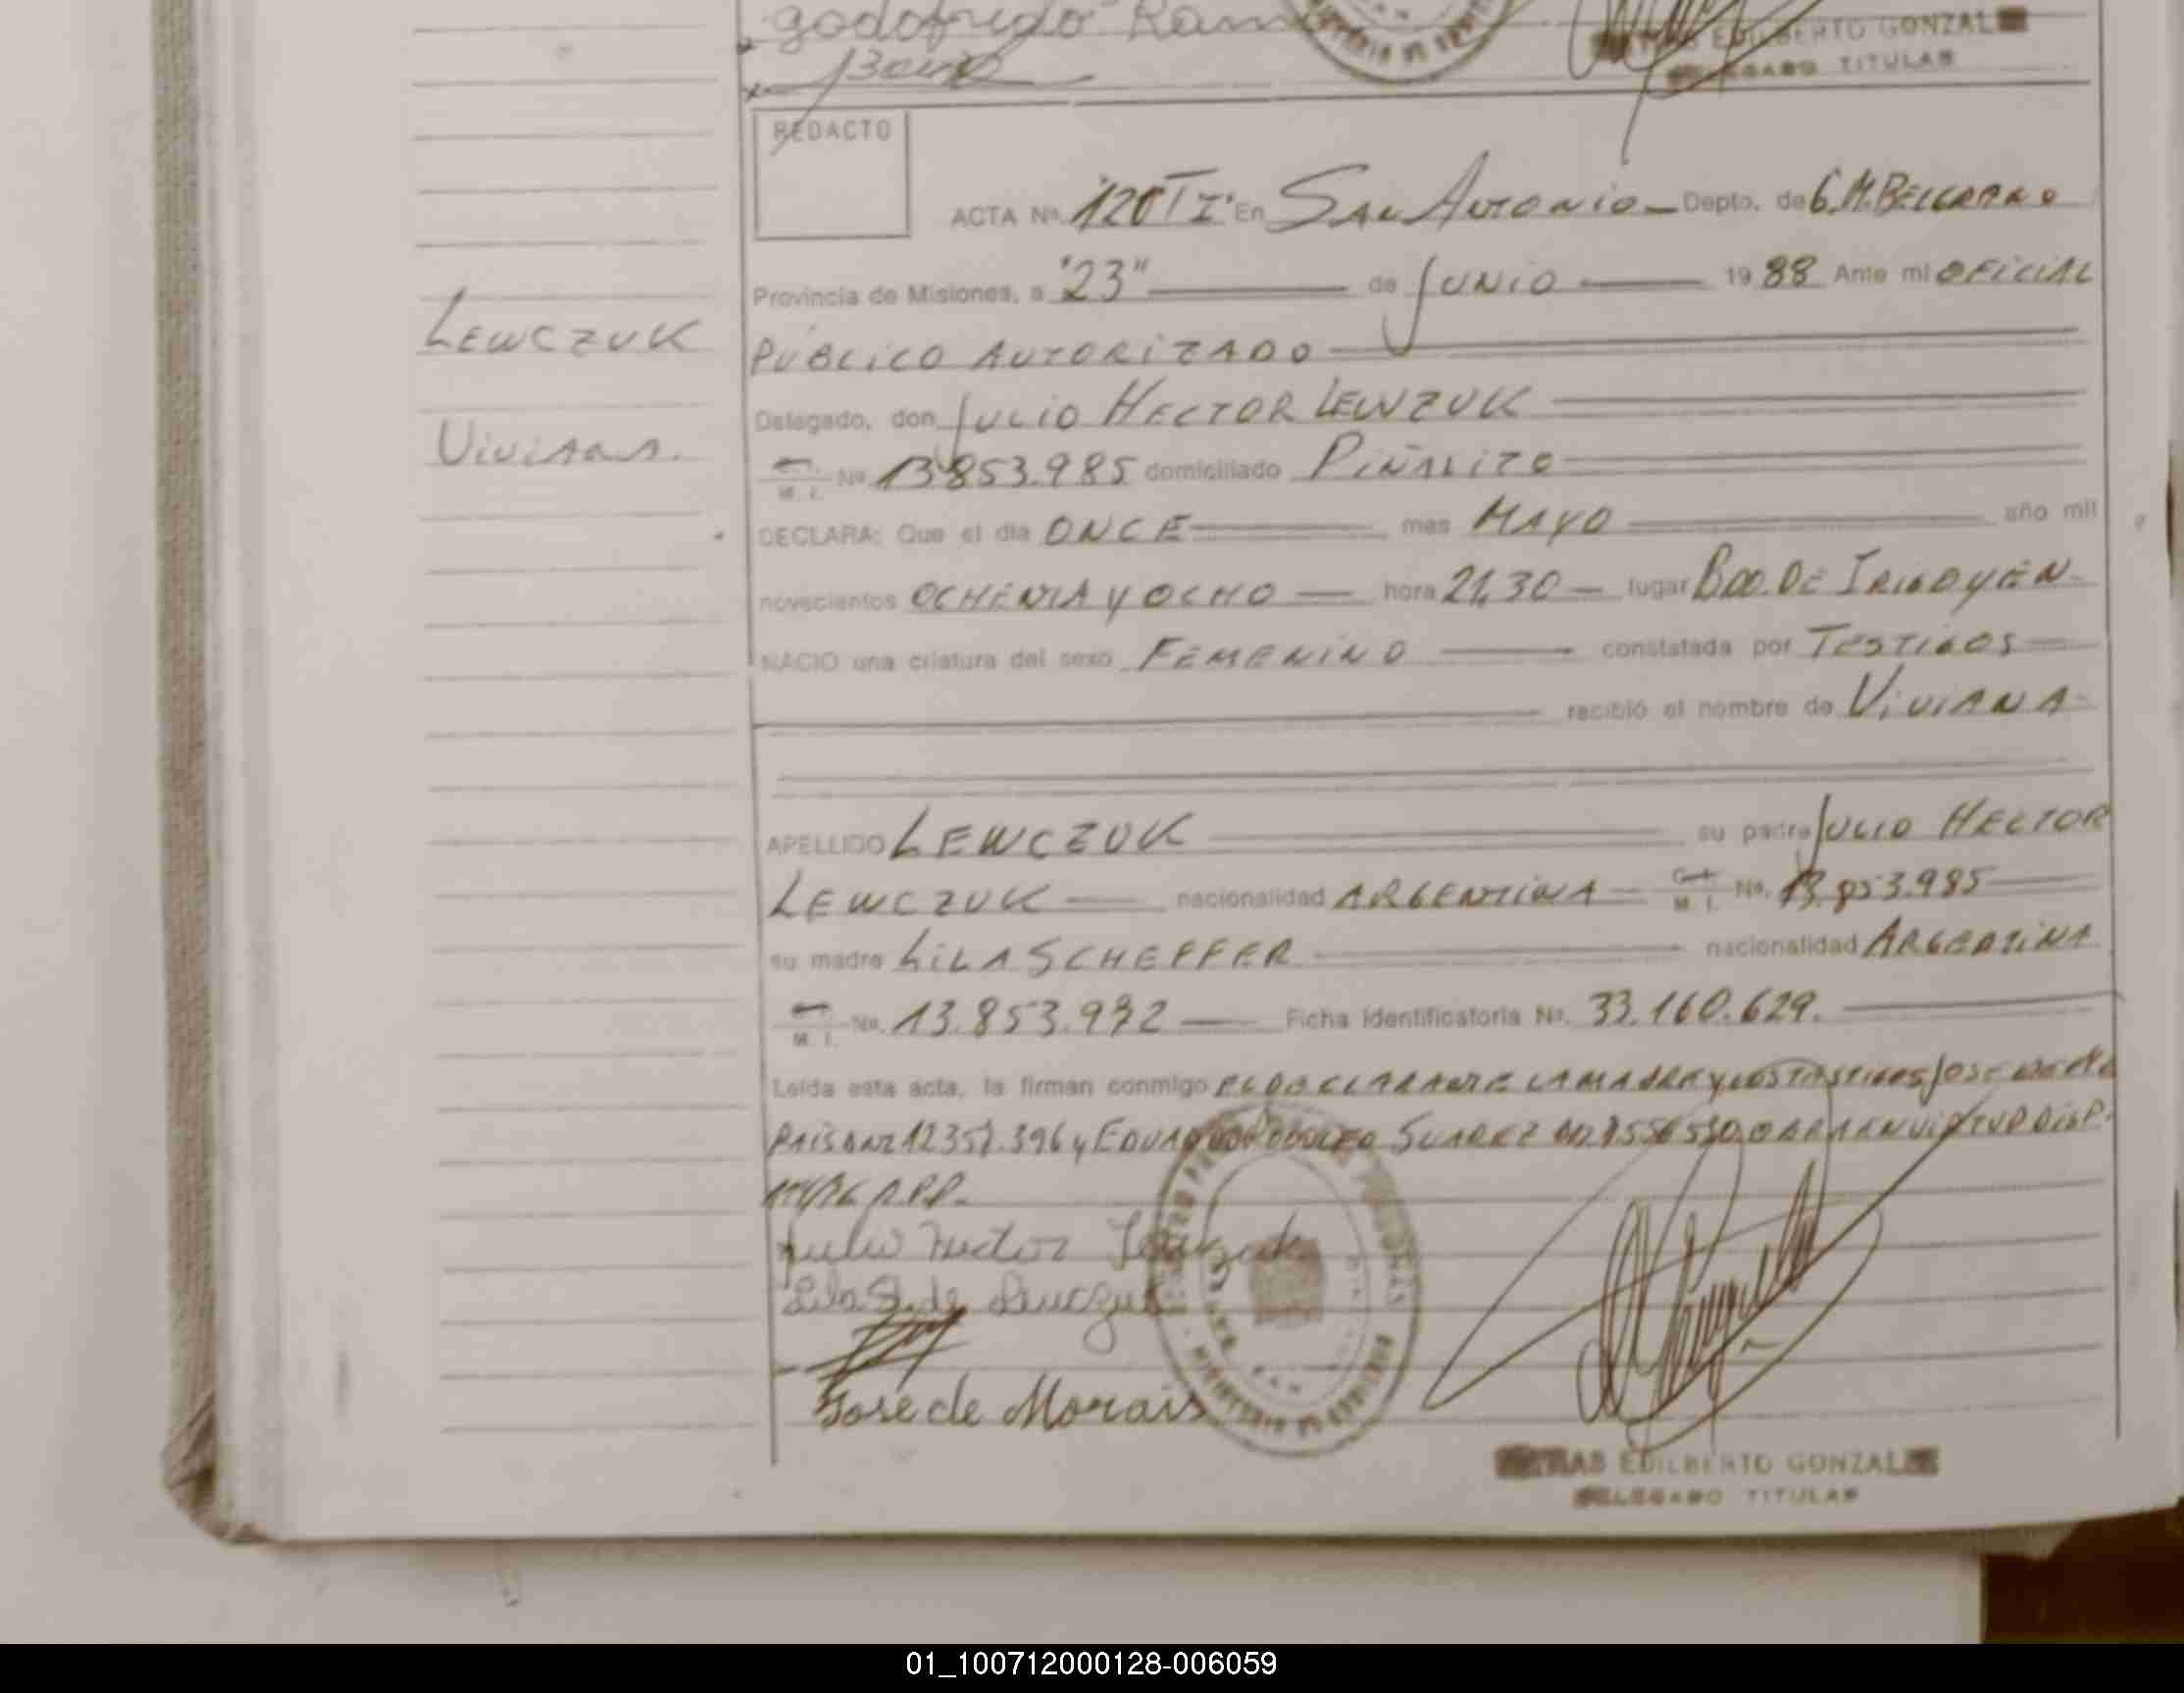 godofredo Ram
EDILBERTO GONZAL
DELEGADO TITULAR
REDACTO
ACTA Nº. "120 T I" En SAN ANTONIO Depto. de G.M. BELGRANO
Provincia de Misiones, a "23" de JUNIO 1988 Ante mi OFICIAL
PUBLICO AUTORIZADO
LEWCZUK
Delegado, don JULIO HECTOR LEWZUK
VIVIANA.
M. I. Nº 13.853.985 domiciliado PIÑALITO
DECLARA: Que el dia ONCE mes MAYO año mil
novecientos OCHENTA Y OCHO hora 21,30 lugar BDO. DE IRIGOYEN
NACIO una criatura del sexo FEMENINO constatada por TESTIGOS
recibió el nombre de VIVIANA
APELLIDO LEWCZUK su padre JULIO HECTOR
LEWCZUK nacionalidad ARGENTINA M. I. Nº. 13.853.985
su madre LILA SCHEFFER nacionalidad ARGENTINA
M. I. Nº. 13.853.992 Ficha Identificatoria Nº. 33.160.629.
Leída esta acta, la firman conmigo EL DECLARANTE LA MADRE Y LOS TESTIGOS JOSE
Y EDUARDO RODOLFO SUAREZ
Julio Hector Lewczuk
Lila S. de Lewczuk
José de Morais
EDILBERTO GONZALEZ
DELEGADO TITULAR
01_100712000128-006059